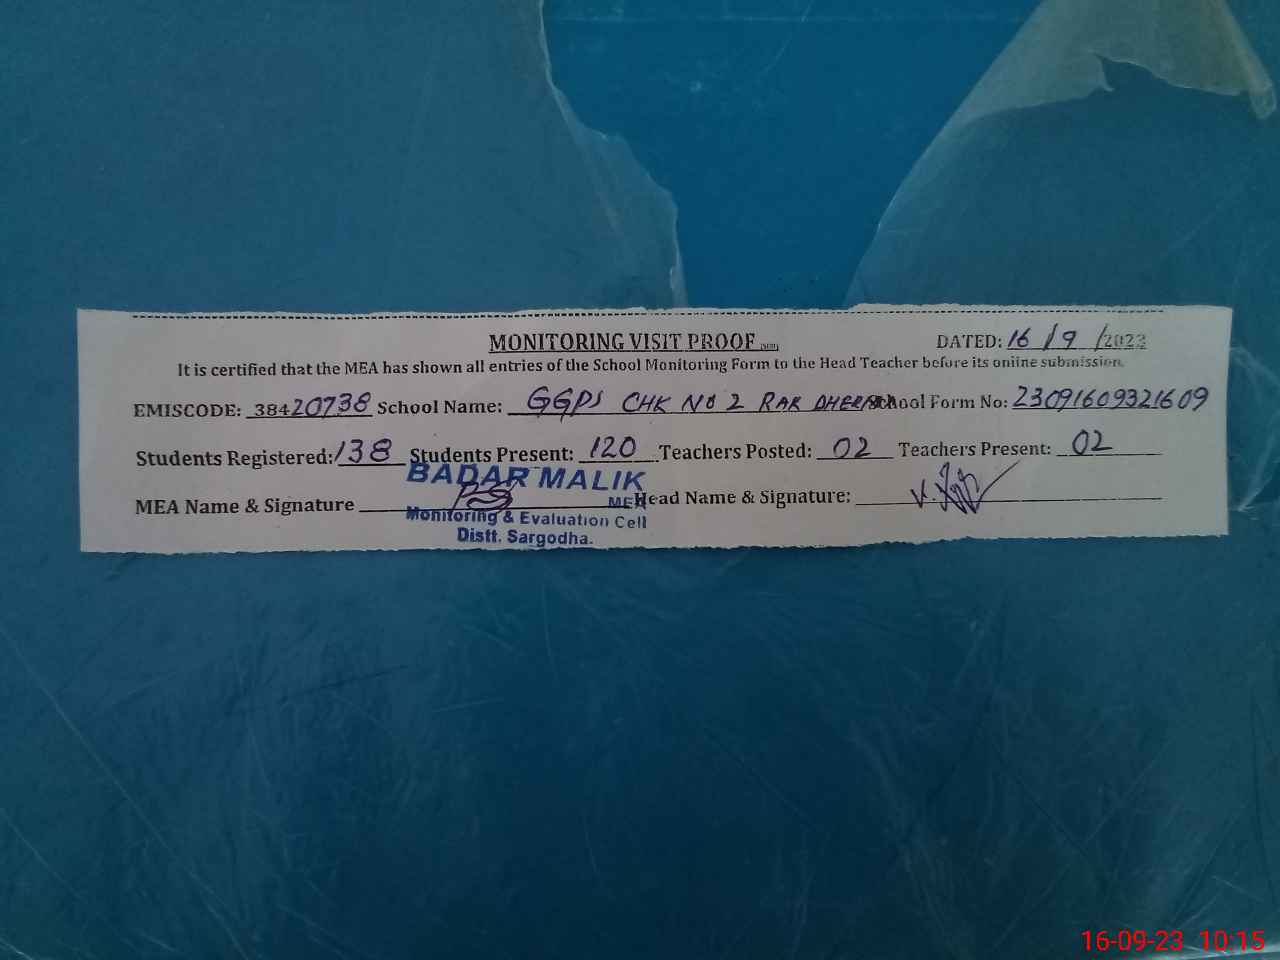 MONITORING VISIT PROOF DATED: 16/9/2023
It is certified that the MEA has shown all entries of the School Monitoring Form to the Head Teacher before its online submission.
EMISCODE: 38420738 School Name: GGPS CHK NO 2 RAK DHEREMA School Form No: 23091609321609
Students Registered: 138 Students Present: 120 Teachers Posted: 02 Teachers Present: 02
BADAR MALIK
MEA Name & Signature MEA Head Name & Signature:
Monitoring & Evaluation Cell
Distt. Sargodha.
16-09-23 10:15